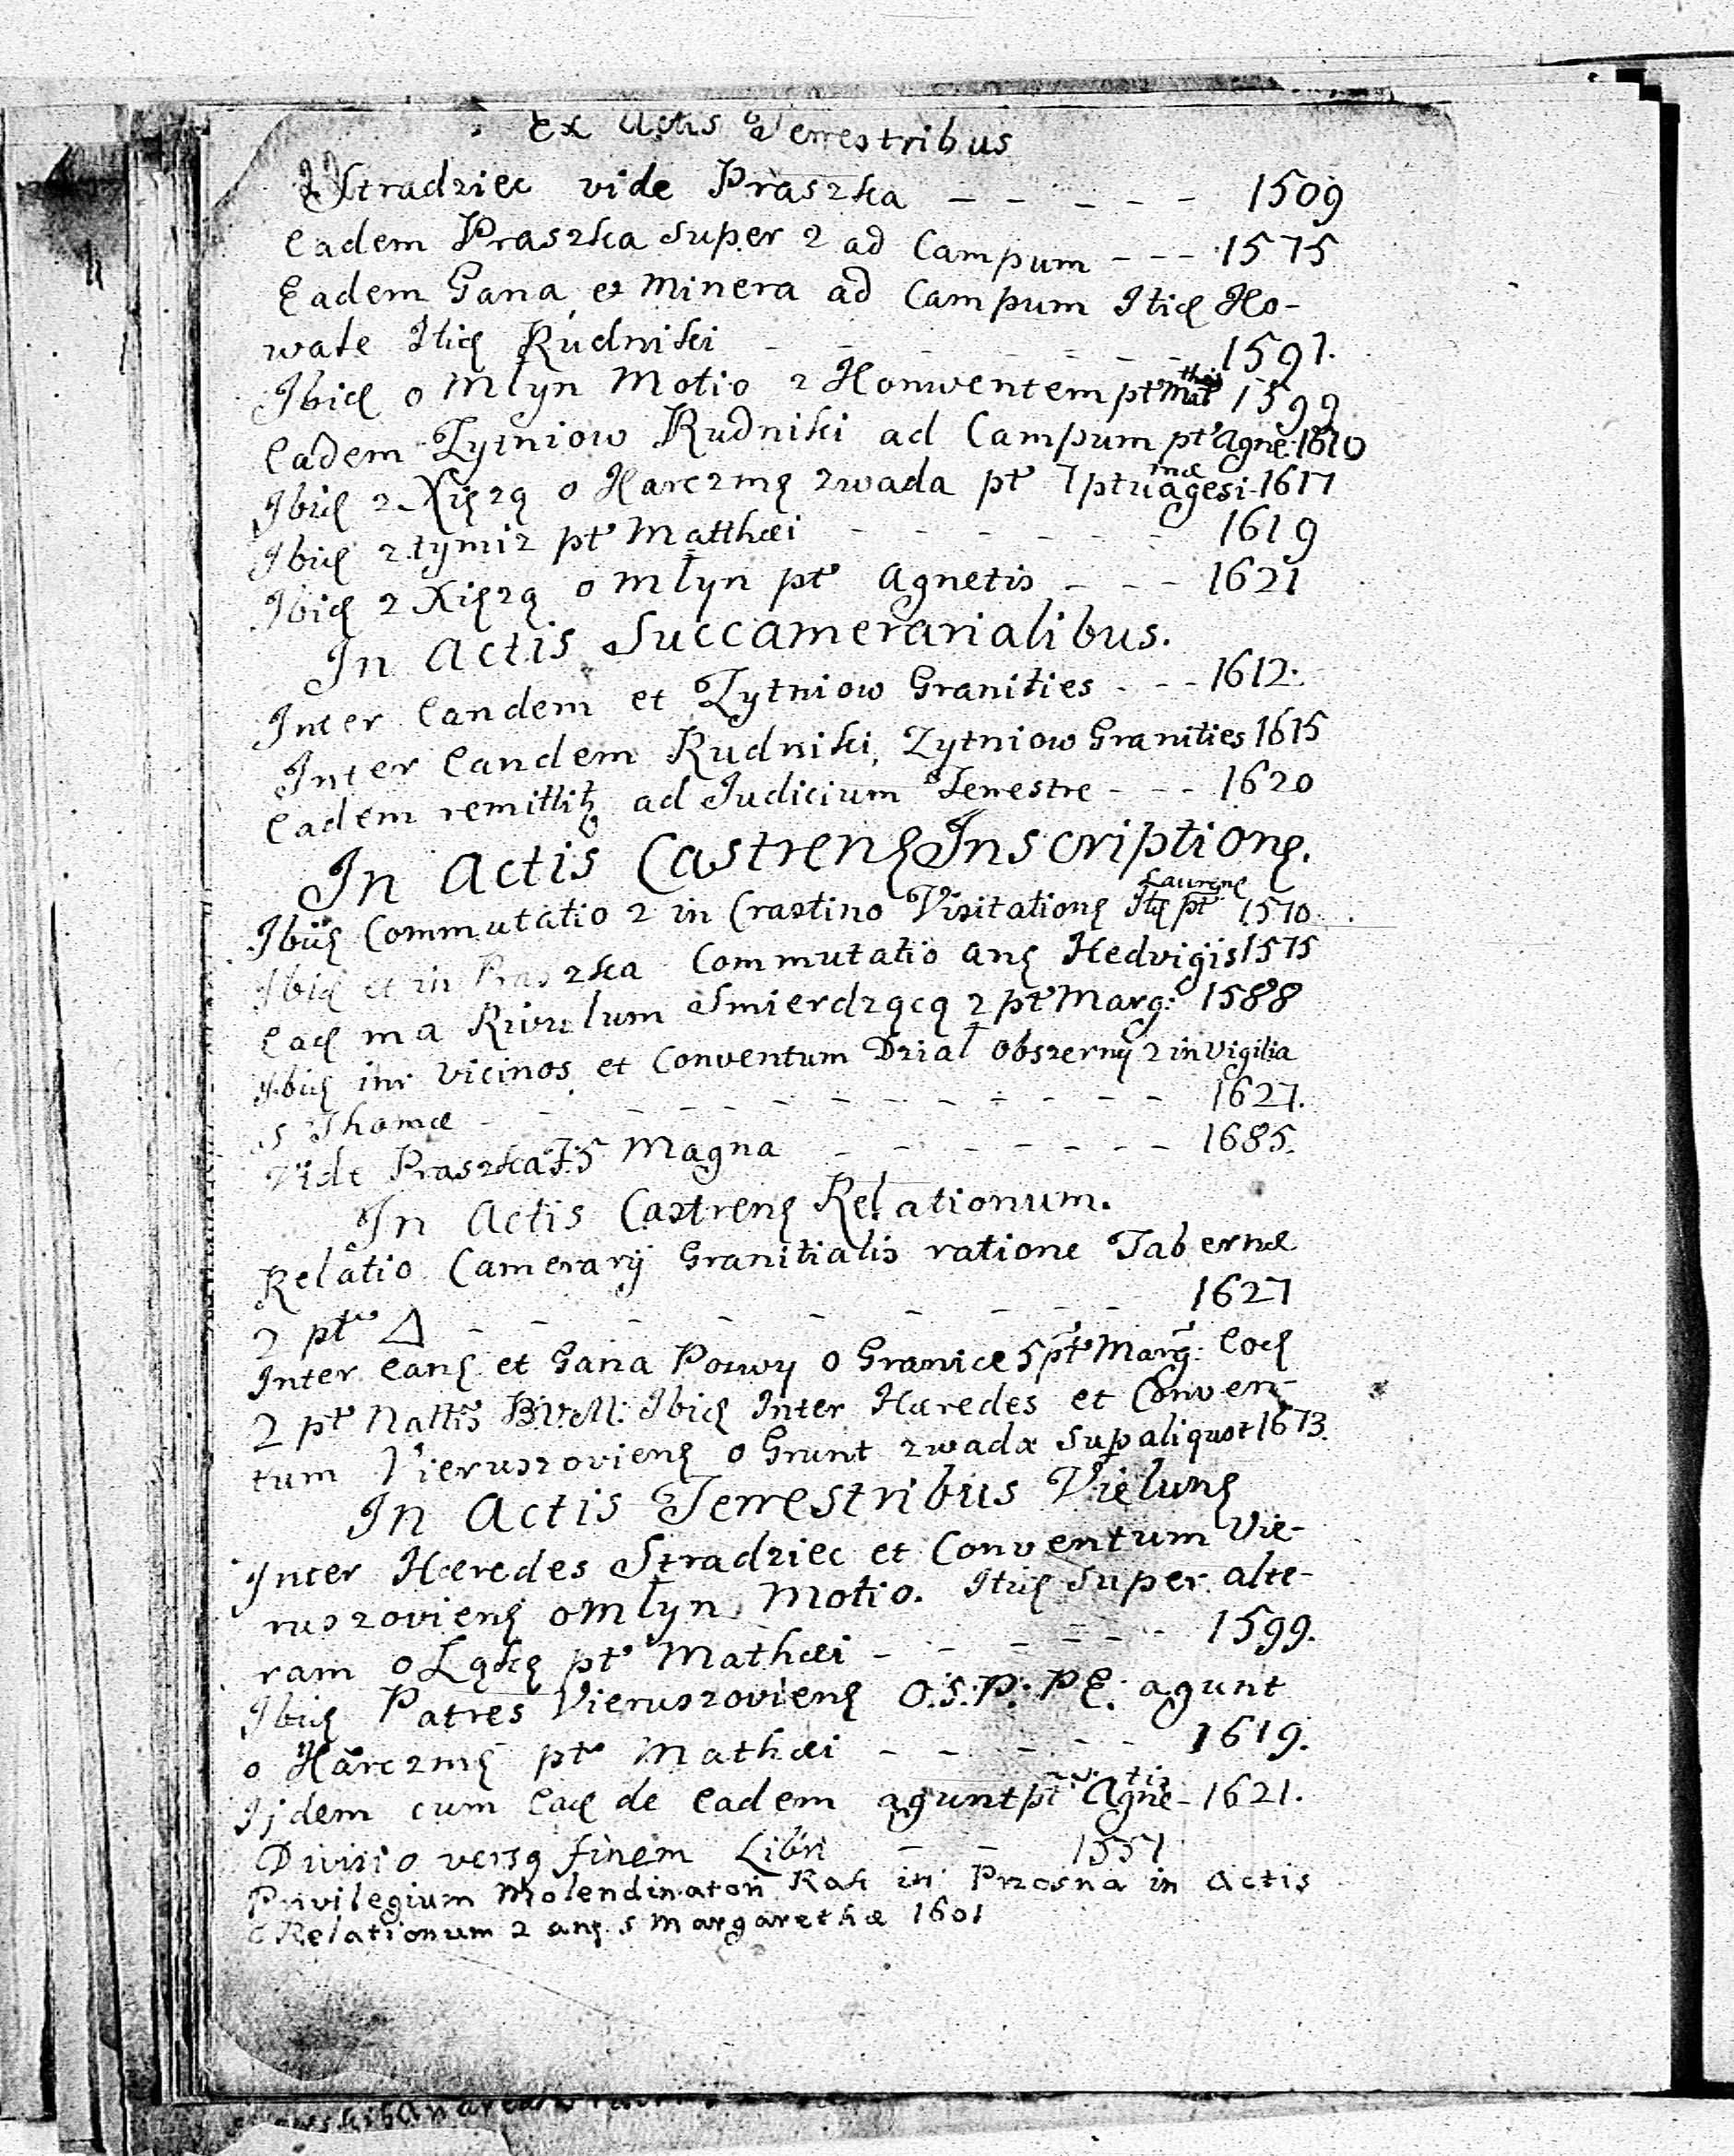 Ex Actis Terrestribus
Stradziec vide Praszka - - - - - 1509
Eadem Praszka Super 2 ad Campum - - - 1575
Eadem Gana, et Minera ad Campum Itiđ Ko-
wale Itiđ Rudniki - - - - - - - 1591.
Ibiđ o Młyn Motio 2 Konwentem pt Mat thæi 1599
Eadem Zytniow Rudniki ad Campum pt Agne: 1610
Ibiđ z Xięzą o Karczmę zwada pt 7ptuagesi mæ 1617
Ibiđ z tymiz pt Matthæi - - - - - - 1619
Ibiđ z Xięzą o Młyn pt Agnetis - - - 1621
In Actis Succamerarialibus.
Inter Eandem et Zytniow Granities - - - 1612.
Inter Eandem Rudniki, Zytniow Granities 1615
Eadem remittit ad Judicium Terrestre - - - 1620
In Actis Castrenę Inscriptionę.
Ibiđ Commutatio 2 in Crastino Visitationę Itę pt Laurenę 1570
Ibiđ et in Praszka Commutatio anę Hedvigis 1575
Eađ ma Rivulum Smierdzącą 2 pt Marg: 1588
Ibiđ inr vicinos et Conventum Dział obszerny 2 in Vigilia
S Thomæ - - - - - - - - - - 1627.
Vide Praszka F.5 Magna - - - - - - - 1685.
In Actis Castrenę Relationum.
Relatio Camerarij Granitialis ratione Tabernæ
2 pt Δ - - - - - - - - 1627
Inter Eanę et Gana Pozwy o Granice 5 pt Marg: Eođ
2 pt Nattis B.V.M: Ibiđ Inter Hæredes et Conven-
tum Vieruszovienę o Grunt zwada Sup aliquot 1673.
In Actis Terrestribus Vielunę
Inter Hæredes Stradziec et Conventum Vie-
ruszovienę o Młyn Motio. Itiđ Super alte-
ram o Łąkę pt Mathæi - - - - - - 1599.
Ibiđ Patres Vieruszovienę O.S.P: P E: agunt
o Karczmę pt Mathæi - - - - - 1619.
Ijdem cum Eađ de Eadem agunt pt Agne tis - 1621.
Divisio versq finem Libri - - 1557
Privilegium Molendinatori Rak in Prosna in Actis
C Relationum 2 anę. S Margarethæ 1601